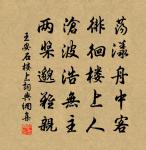 蕩漾舟中客
徘徊楼上人
滄波浩無主
两槳邈難親
王安石楼上詞典網集